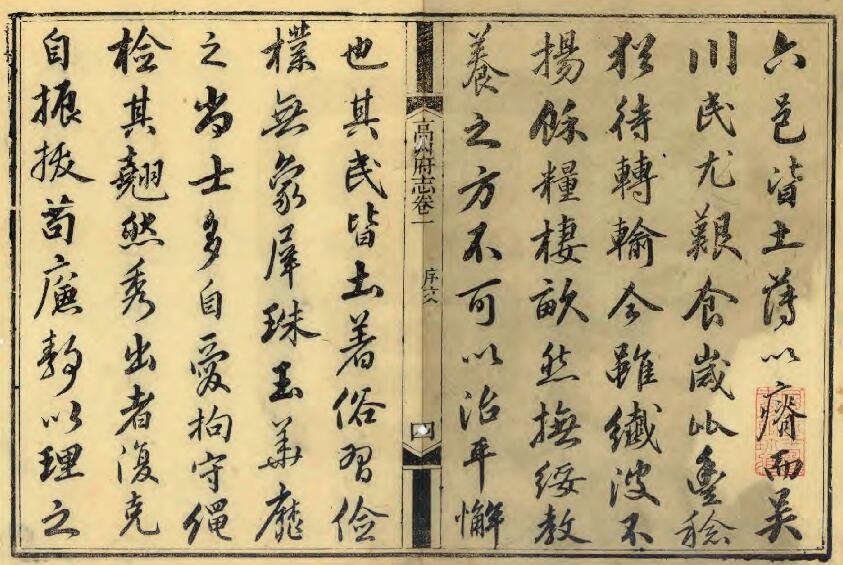 六邑皆土薄以瘠而吳
川民尤艱食歲比豐稔
猶待轉輸今雖纖波不
揚餘糧棲畝然撫綏教
養之方不可以治平懈
高州府志卷一
序
四
也其民皆土著俗習儉
樸無象犀珠玉華靡
之尚士多自愛拘守繩
檢其翹然秀出者復克
自振拔苟廉靜以理之